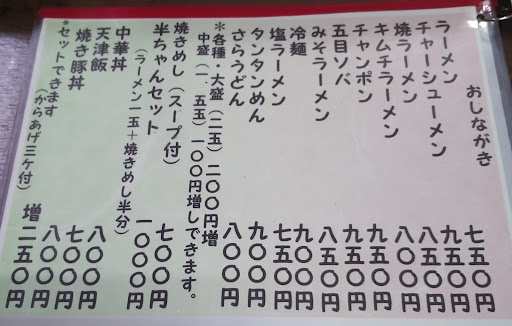 おしながき
ラーメン 七五〇円
チャーシューメン 九五〇円
焼ラーメン 九五〇円
キムチラーメン 八〇〇円
チャンポン 九五〇円
五目ソバ 九五〇円
みそラーメン 八五〇円
冷麺 九〇〇円
塩ラーメン 七五〇円
タンタンめん 九〇〇円
さらうどん 八〇〇円
*各種・大盛(二玉)二〇〇円増
中盛(一.五玉)一〇〇円増しできます。
焼きめし(スープ付) 七〇〇円
半ちゃんセット 一〇〇〇円
(ラーメン一玉+焼きめし半分)
中華丼 八〇〇円
天津飯 七〇〇円
焼き豚丼 八〇〇円
*セットできます 増二五〇円
(からあげ三ケ付)